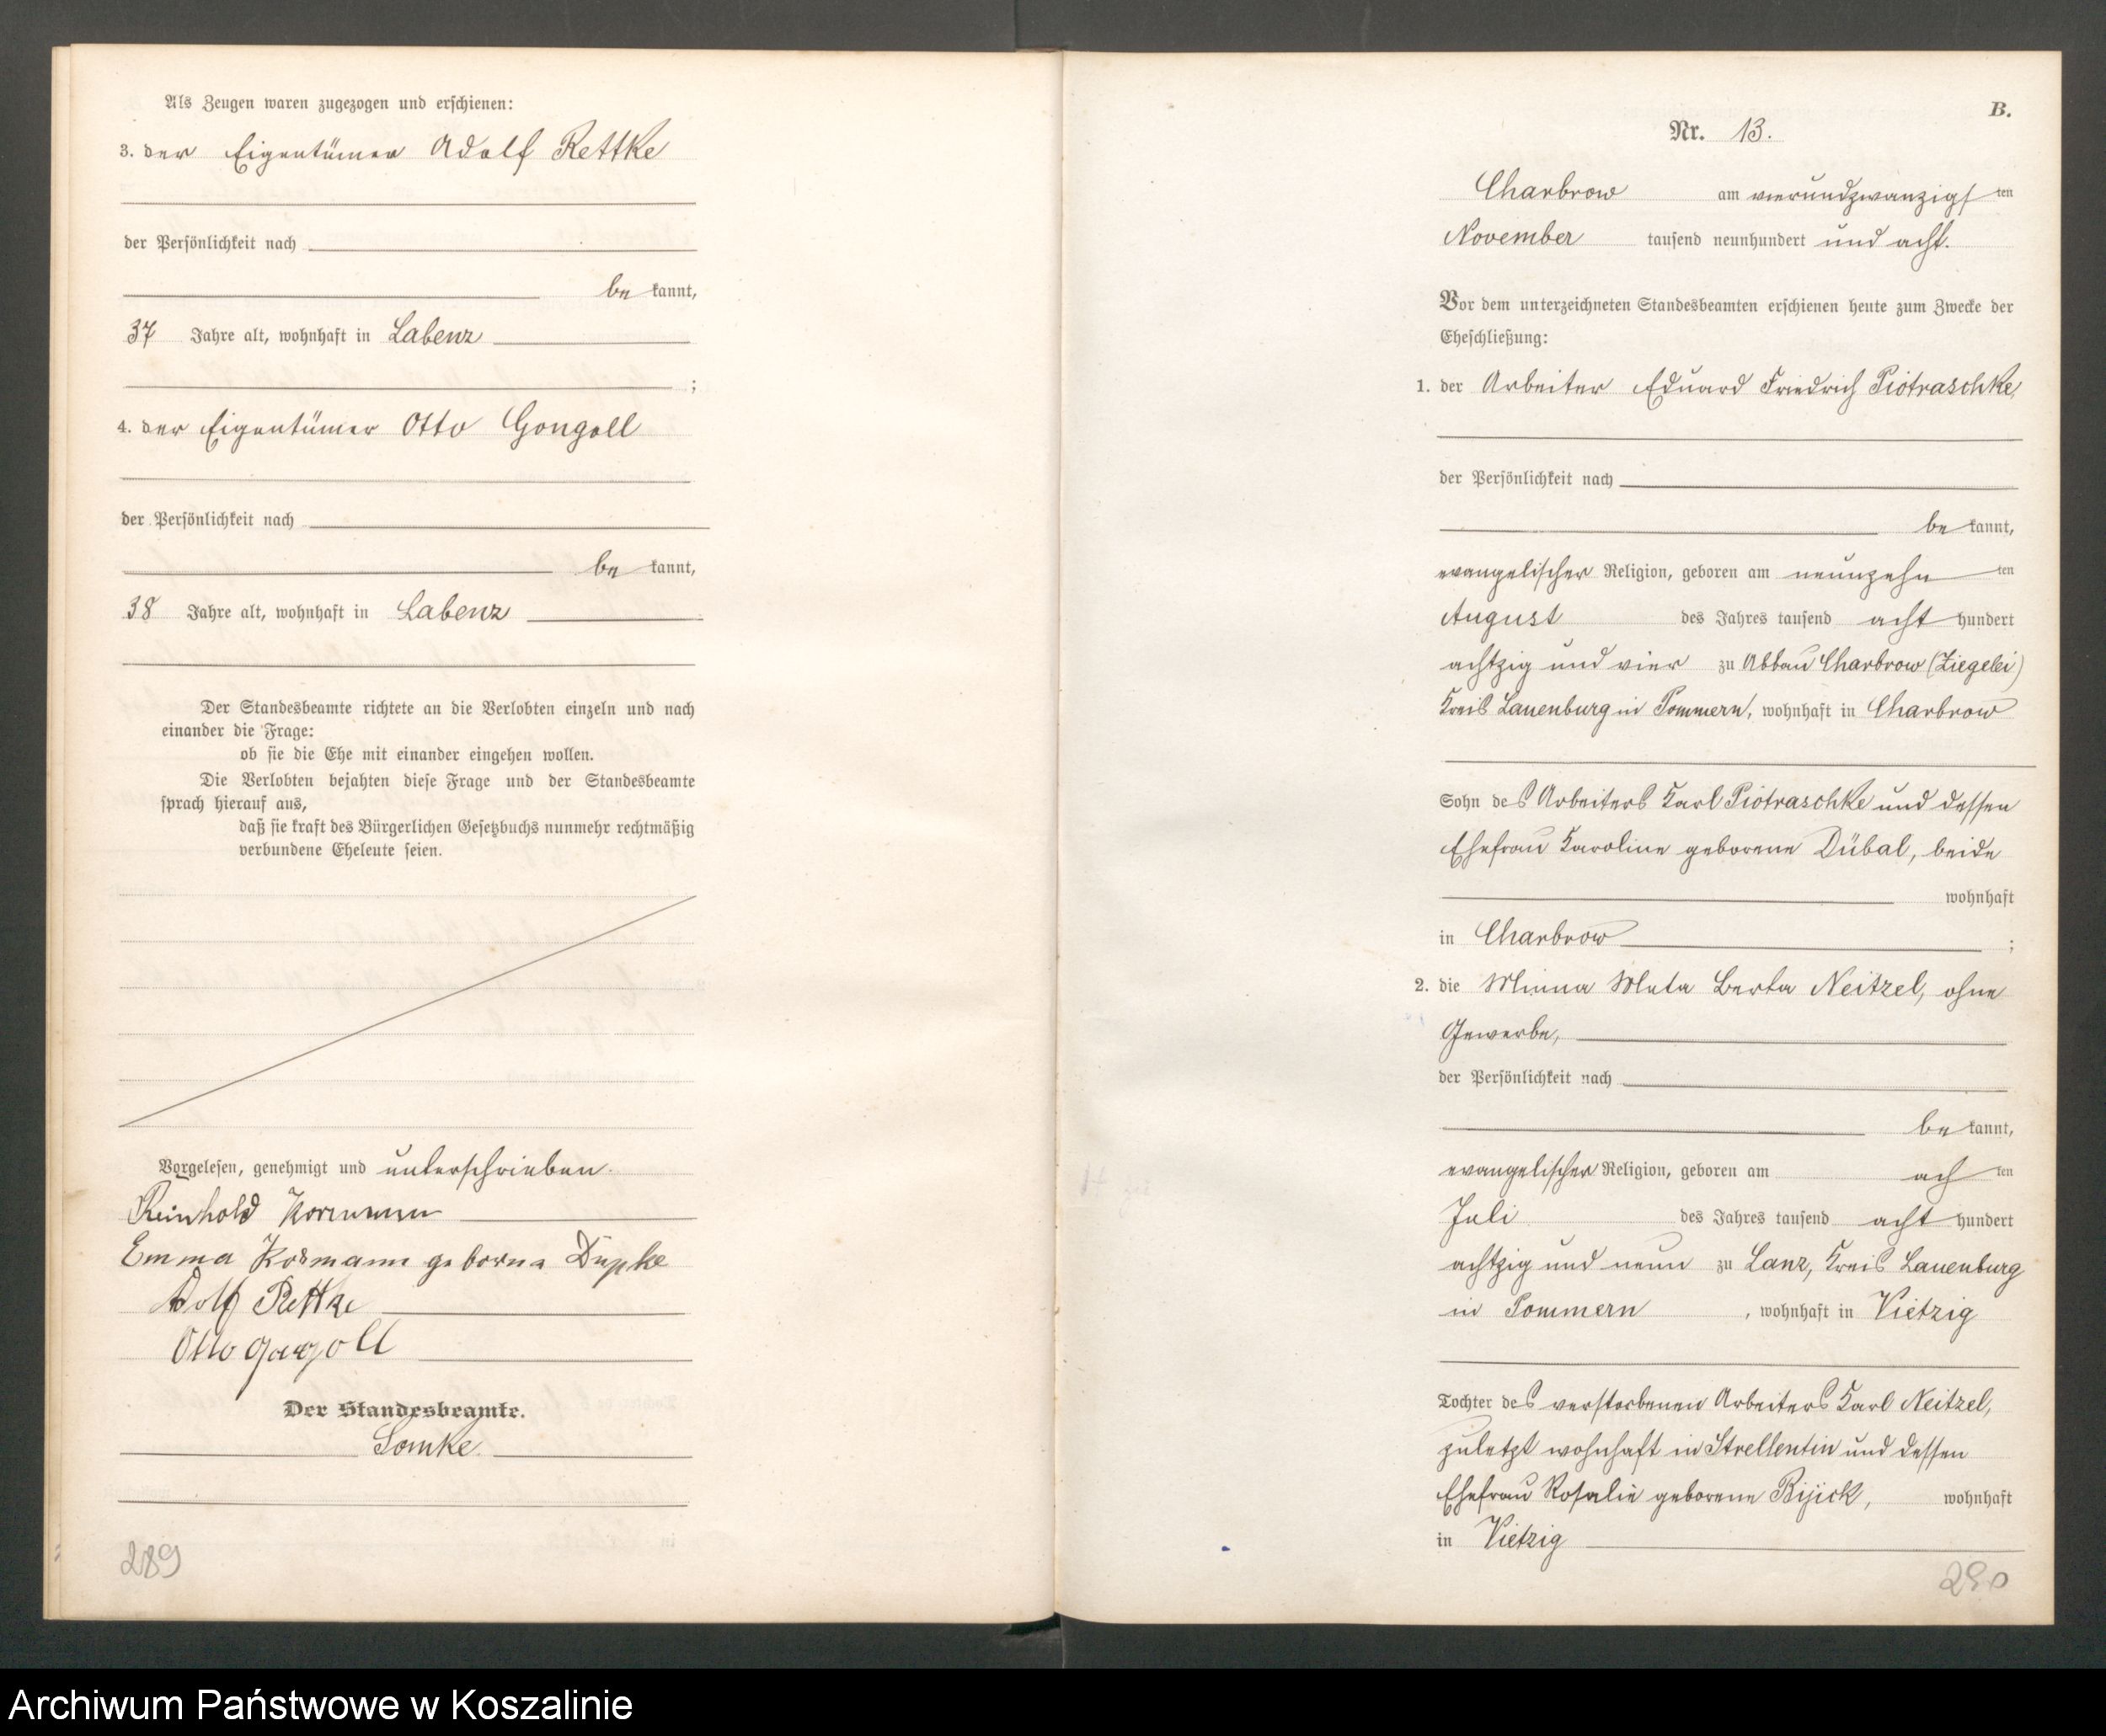 Als Zeugen waren zugezogen und erschienen:
3. der Eigentümer Adolf Rettke
der Persönlichkeit nach
be kannt,
37 Jahre alt, wohnhaft in Labenz
;
4. der Eigentümer Otto Gongoll
der Persönlichkeit nach
be kannt,
38 Jahre alt, wohnhaft in Labenz
Der Standesbeamte richtete an die Verlobten einzeln und nach
einander die Frage:
ob sie die Ehe mit einander eingehen wollen.
Die Verlobten bejahten diese Frage und der Standesbeamte
sprach hierauf aus,
daß sie kraft des Bürgerlichen Gesetzbuchs nunmehr rechtmäßig
verbundene Eheleute seien.
Vorgelesen, genehmigt und unterschrieben.
Reinhold
Emma geborne
Adolf Rettke
Otto
Der Standesbeamte.
289
B.
Nr. 13.
Charbrow am vierundzwanzigs ten
November tausend neunhundert und acht.
Vor dem unterzeichneten Standesbeamten erschienen heute zum Zwecke der
Eheschließung:
1. der Arbeiter Eduard Friedrich Piotraschke,
der Persönlichkeit nach
be kannt,
evangelischer Religion, geboren am neunzehn ten
August des Jahres tausend acht hundert
achtzig und vier zu Abbau Charbrow (Ziegelei)
Kreis Lauenburg in Pommern, wohnhaft in Charbrow
Sohn des Arbeiters Karl Piotraschke und dessen
Ehefrau Karoline geborene Dübal, beide
wohnhaft
in Charbrow ;
2. die Minna Meta Berta Neitzel, ohne
Gewerbe,
der Persönlichkeit nach
be kannt,
evangelischer Religion, geboren am ach ten
Juli des Jahres tausend acht hundert
achtzig und neun zu Lanz, Kreis Lauenburg
in Pommern , wohnhaft in Vietzig
Tochter des verstorbenen Arbeiters Karl Neitzel,
zuletzt wohnhaft in Strellentin und dessen
Ehefrau Rosalie geborene , wohnhaft
in Vietzig
290
Archiwum Państwowe w Koszalinie